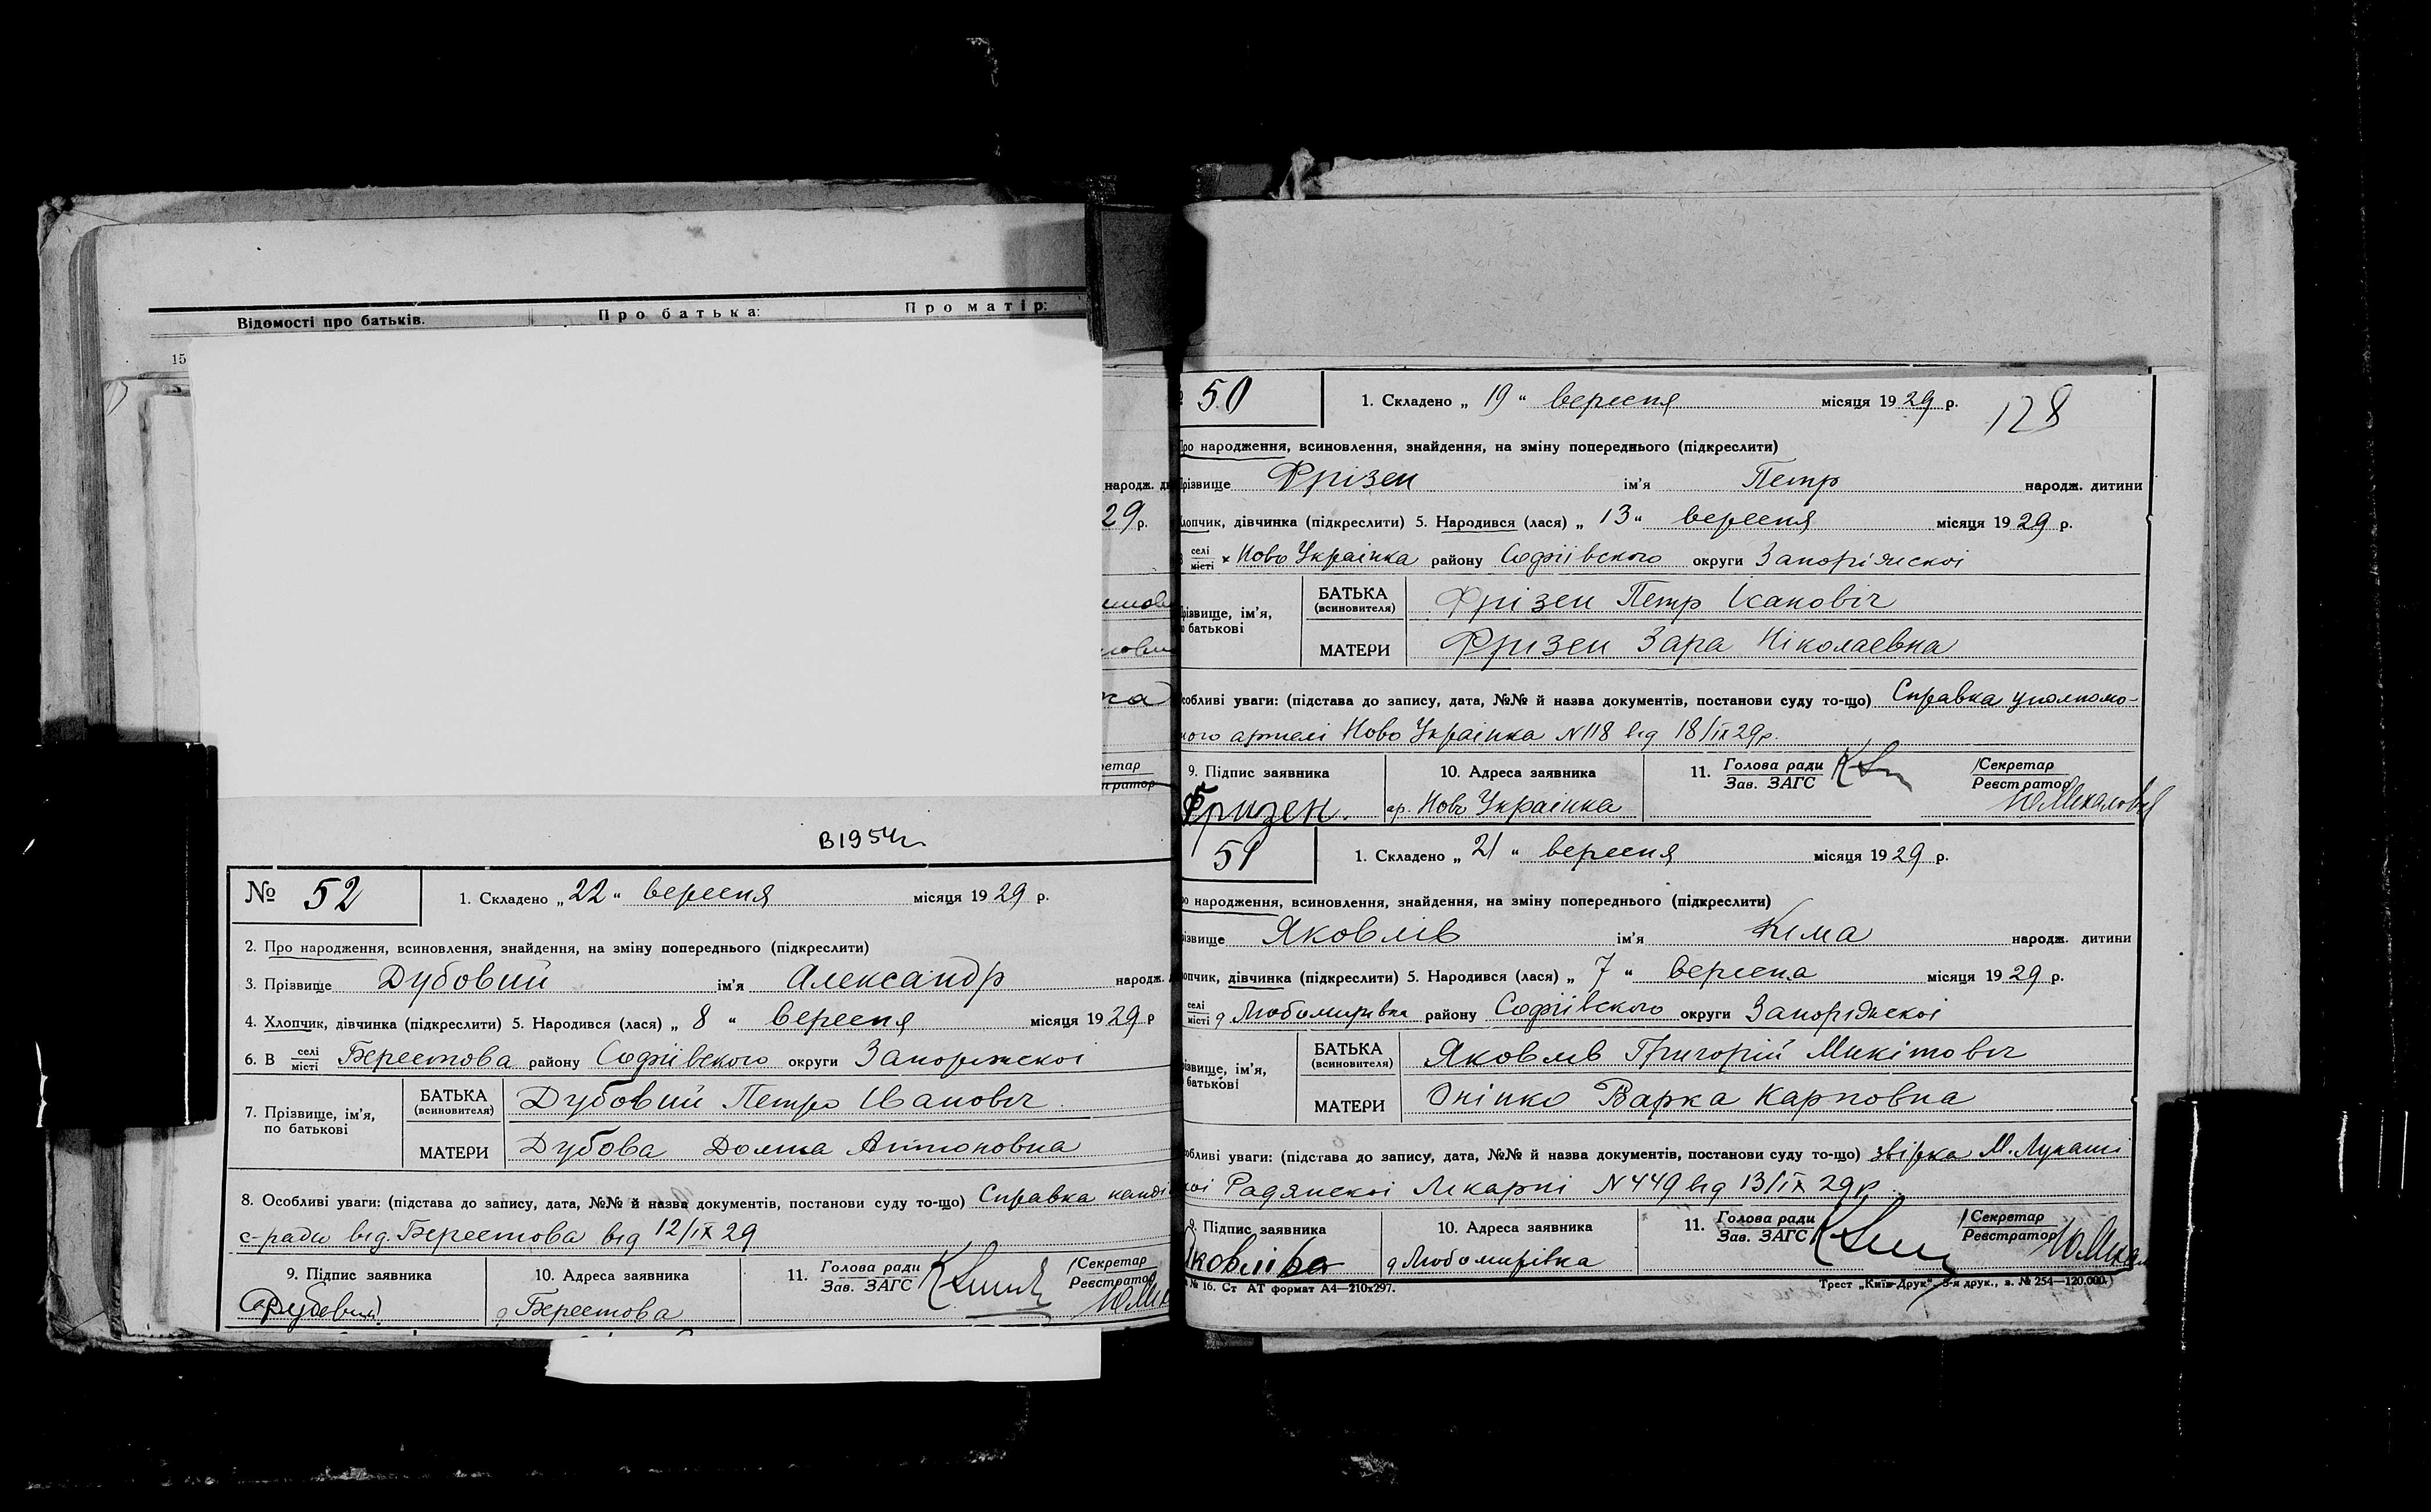 Відомості про батьків. Про батька: Про матір:
15
народж.
29 р.
ка
В 1954 г.
№ 52 1. Складено „ 22 “ вересня місяця 1929 р.
2. Про народження, всиновлення, знайдення, на зміну попереднього (підкреслити)
3. Прізвище Дубовий ім'я Александр народж.
4. Хлопчик, дівчинка (підкреслити) 5. Народився (лася) „ 8 “ вересня місяця 1929 р
6. В селі місті Берестова району Софіївского округи Запоріжскоі
7. Прізвище, ім'я, по батькові
БАТЬКА (всиновителя) Дубовий Петро Іванович
МАТЕРИ Дубова Домна Антоновна
8. Особливі уваги: (підстава до запису, дата, №№ й назва документів, постанови суду то-що) Справка
с-ради від. Берестова від 12/IX 29
9. Підпис заявника 10. Адреса заявника 11. Голова ради Зав. ЗАГС Секретар Реєстратор
Дубовий д Берестова
50 1. Складено „ 19 “ вересня місяця 1929 р.
128
Про народження, всиновлення, знайдення, на зміну попереднього (підкреслити)
Прізвище Фрізен ім'я Петр народж. дитини
Хлопчик, дівчинка (підкреслити) 5. Народився (лася) „ 13 “ вересня місяця 1929 р.
селі місті х Ново Украінка району Софіївского округи Запоріжскоі
Прізвище, ім'я, по батькові
БАТЬКА (всиновителя) Фрізен Петр Ісакович
МАТЕРИ Фризен Зара Ніколаевна
особливі уваги: (підстава до запису, дата, №№ й назва документів, постанови суду то-що) Справка уполномо-
ного артелі Ново Украінка N 118 від 18/IX 29 р.
9. Підпис заявника 10. Адреса заявника 11. Голова ради Зав. ЗАГС Секретар Реєстратор
Фризен. ар. Ново Украінка
51 1. Складено „ 21 “ вересня місяця 1929 р.
народження, всиновлення, знайдення, на зміну попереднього (підкреслити)
Яковлів ім'я Кіма народж. дитини
дівчинка (підкреслити) 5. Народився (лася) „ 7 “ вересня місяця 1929 р.
селі місті д Любомирівка району Софіївского округи Запоріжскоі
ім'я, батькові
БАТЬКА (всиновителя) Яковлів Григорій Микітович
МАТЕРИ Онінко Варка Карповна
уваги: (підстава до запису, дата, №№ й назва документів, постанови суду то-що) М. Лукаші
Радянскоі Лікарні N 449 від 13/IX 29 р.
9. Підпис заявника 10. Адреса заявника 11. Голова ради Зав. ЗАГС Секретар Реєстратор
Яковліва д Любомирівка
№ 16. Ст АТ формат А4—210х297. Трест „Київ-Друк“, 3-я друк., з. № 254—120,000.)